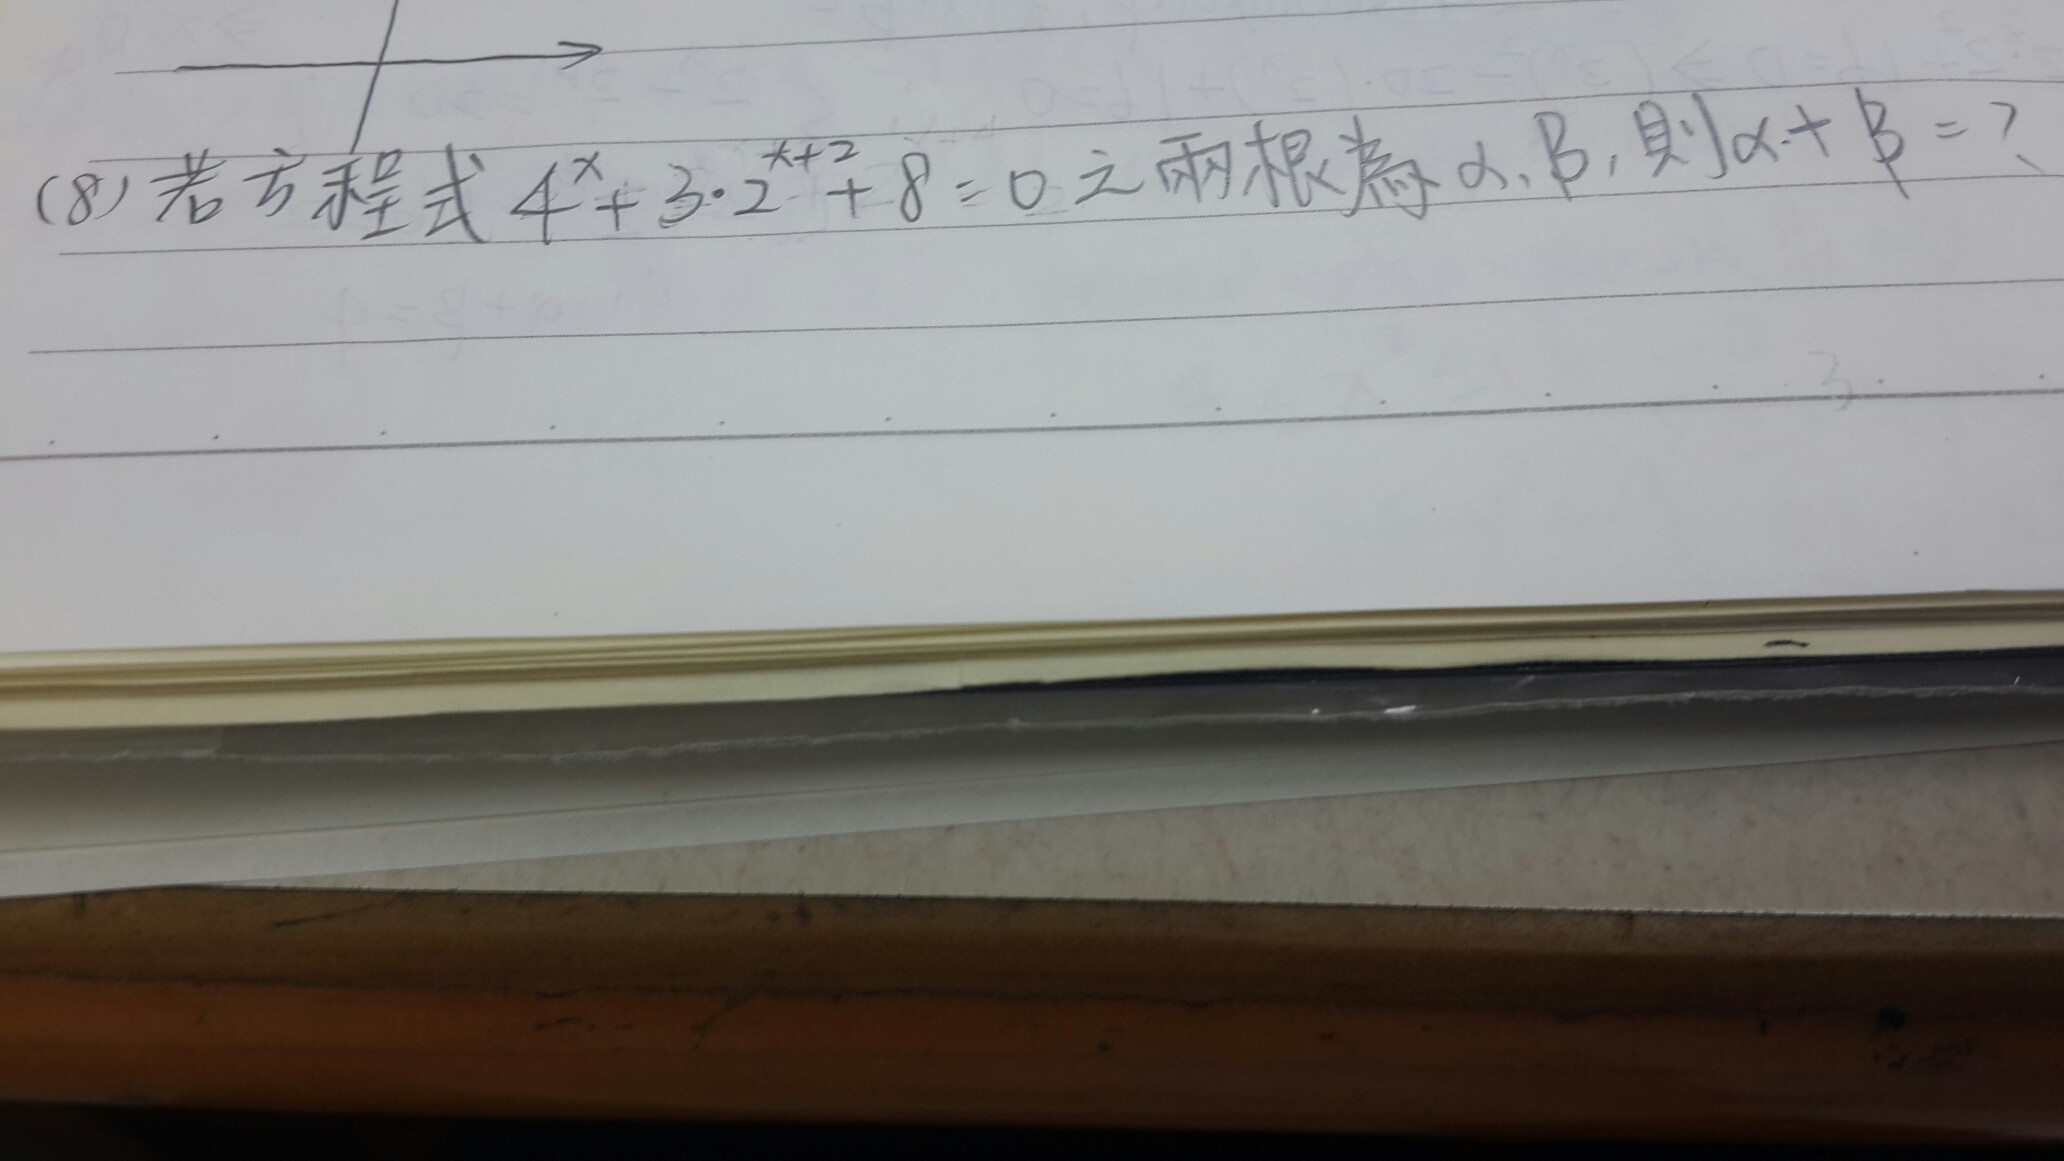 (8) 若方程式 4^x + 3·2^{x+2} + 8 = 0 之兩根為 α、β, 則 α + β = ?